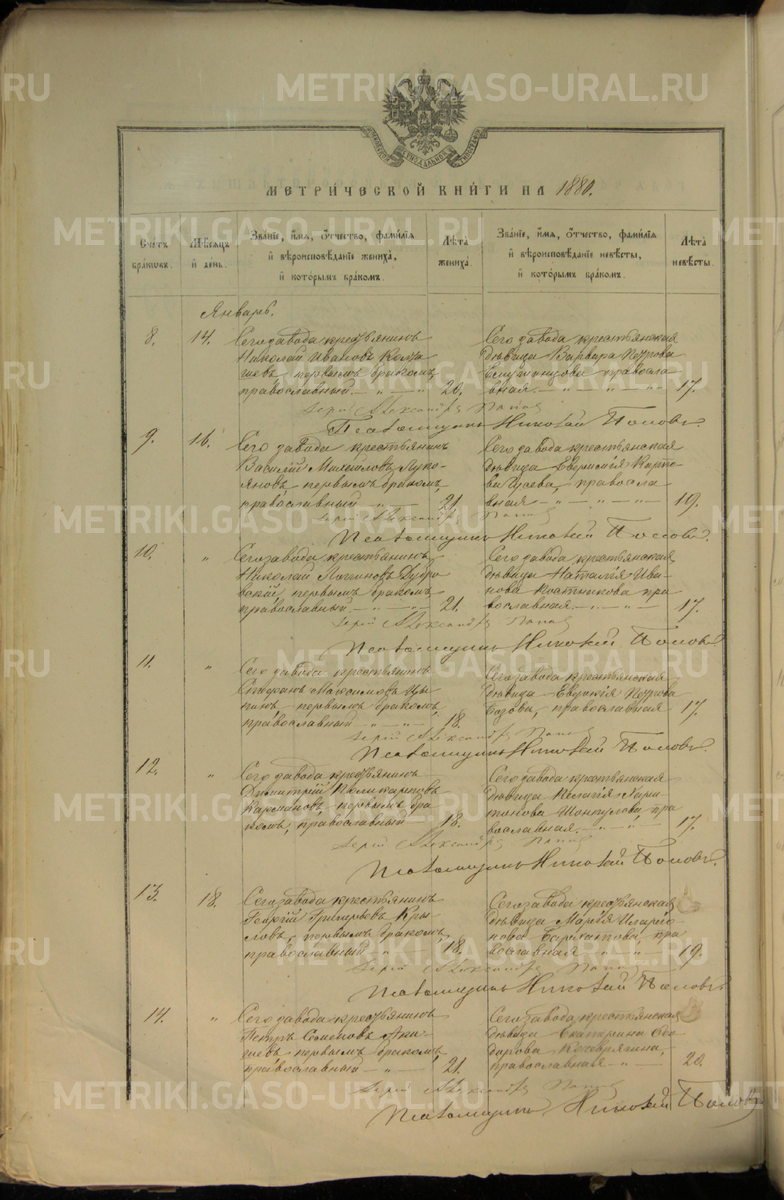 METRIKI.GASO-URAL.RU
МЕТРИЧЕСКОЙ КНИГИ НА 1880.
Счетъ браковъ.
Мѣсяцъ и день.
Званіе, имя, отчество, фамилія и вѣроисповѣданіе жениха, и которымъ бракомъ.
Лѣта жениха.
Званіе, имя, отчество, фамилія и вѣроисповѣданіе невѣсты, и которымъ бракомъ.
Лѣта невѣсты.
Январь.
8. 14. Сего завода крестьянинъ
Николай Ивановъ
первымъ бракомъ,
православный 20.
Сего завода крестьянская
дѣвица Варвара Петрова
правосла-
вная 17.
Іерей Александръ Попов
Псаломщикъ Николай Поповъ.
9. 16. Сего завода крестьянинъ
Василій Михайловъ Луко-
яновъ, первымъ бракомъ,
православный 21.
Сего завода крестьянская
дѣвица Евдокія Карпо-
ва правосла-
вная 19.
Іерей Александръ Попов
Псаломщикъ Николай Поповъ.
10. " Сего завода крестьянинъ
Николай Логиновъ Дубро-
вскій, первымъ бракомъ,
православный 21.
Сего завода крестьянская
дѣвица Наталія Ива-
нова Костикова пра-
вославная 17.
Іерей Александръ Попов
Псаломщикъ Николай Поповъ
11. " Сего завода крестьянинъ
Стефанъ Максимовъ Цы-
пинъ, первымъ бракомъ,
православный 18.
Сего завода крестьянская
дѣвица Евдокія Петрова
православная 17.
Іерей Александръ Попов
Псаломщикъ Николай Поповъ.
12. " Сего завода крестьянинъ
Димитрій Поликарповъ
первымъ бра-
комъ, православный 18.
Сего завода крестьянская
дѣвица Пелагія Хари-
тонова пра-
вославная 17.
Іерей Александръ Попов
Псаломщикъ Николай Поповъ.
13. 18. Сего завода крестьянинъ
Георгій Григорьевъ Кры-
ловъ, первымъ бракомъ,
православный 18.
Сего завода крестьянская
дѣвица Марія Иларіо-
нова пра-
вославная 19.
Іерей Александръ Попов
Псаломщикъ Николай Поповъ
14. " Сего завода крестьянинъ
Петръ Семеновъ
первымъ бракомъ,
православный 21.
Сего завода крестьянская
дѣвица Екатерина Ѳео-
дорова Кочевряшна,
православная 20.
Іерей Александръ Попов
Псаломщикъ Николай Поповъ